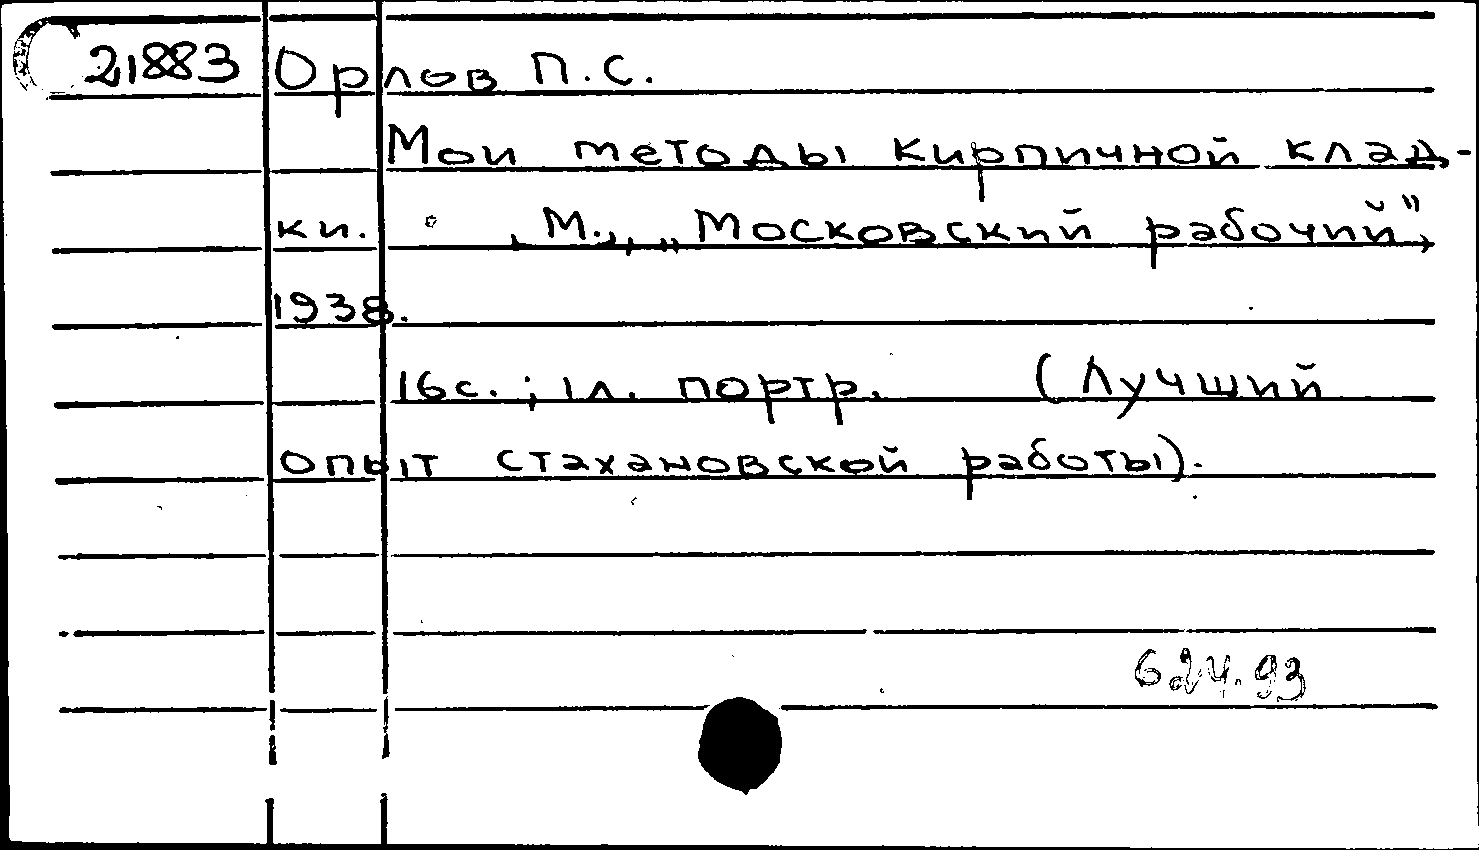 21883 Орлов П.С.
Мои методы кирпичной клад-
ки. , М., „Московский рабочий",
1938.
16с.; 1л. портр. (Лучший
опыт стахановской работы).
624.93